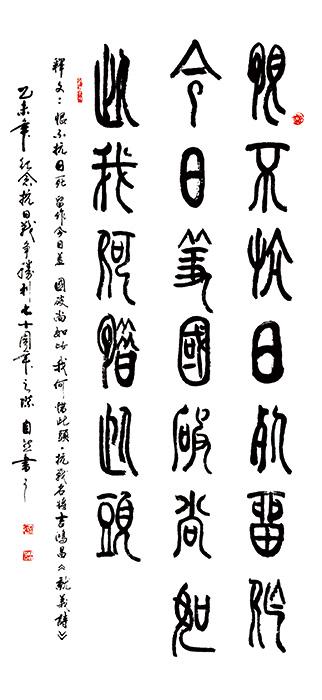 恨不抗日死留作
今日羞國破尚如
此我何惜此頭
釋文：恨不抗日死 留作今日羞 國破尚如此 我何惜此頭·抗戰名將吉鴻昌《就義詩》
乙未年纪念抗日戰争勝利七十周年之際 自然書之